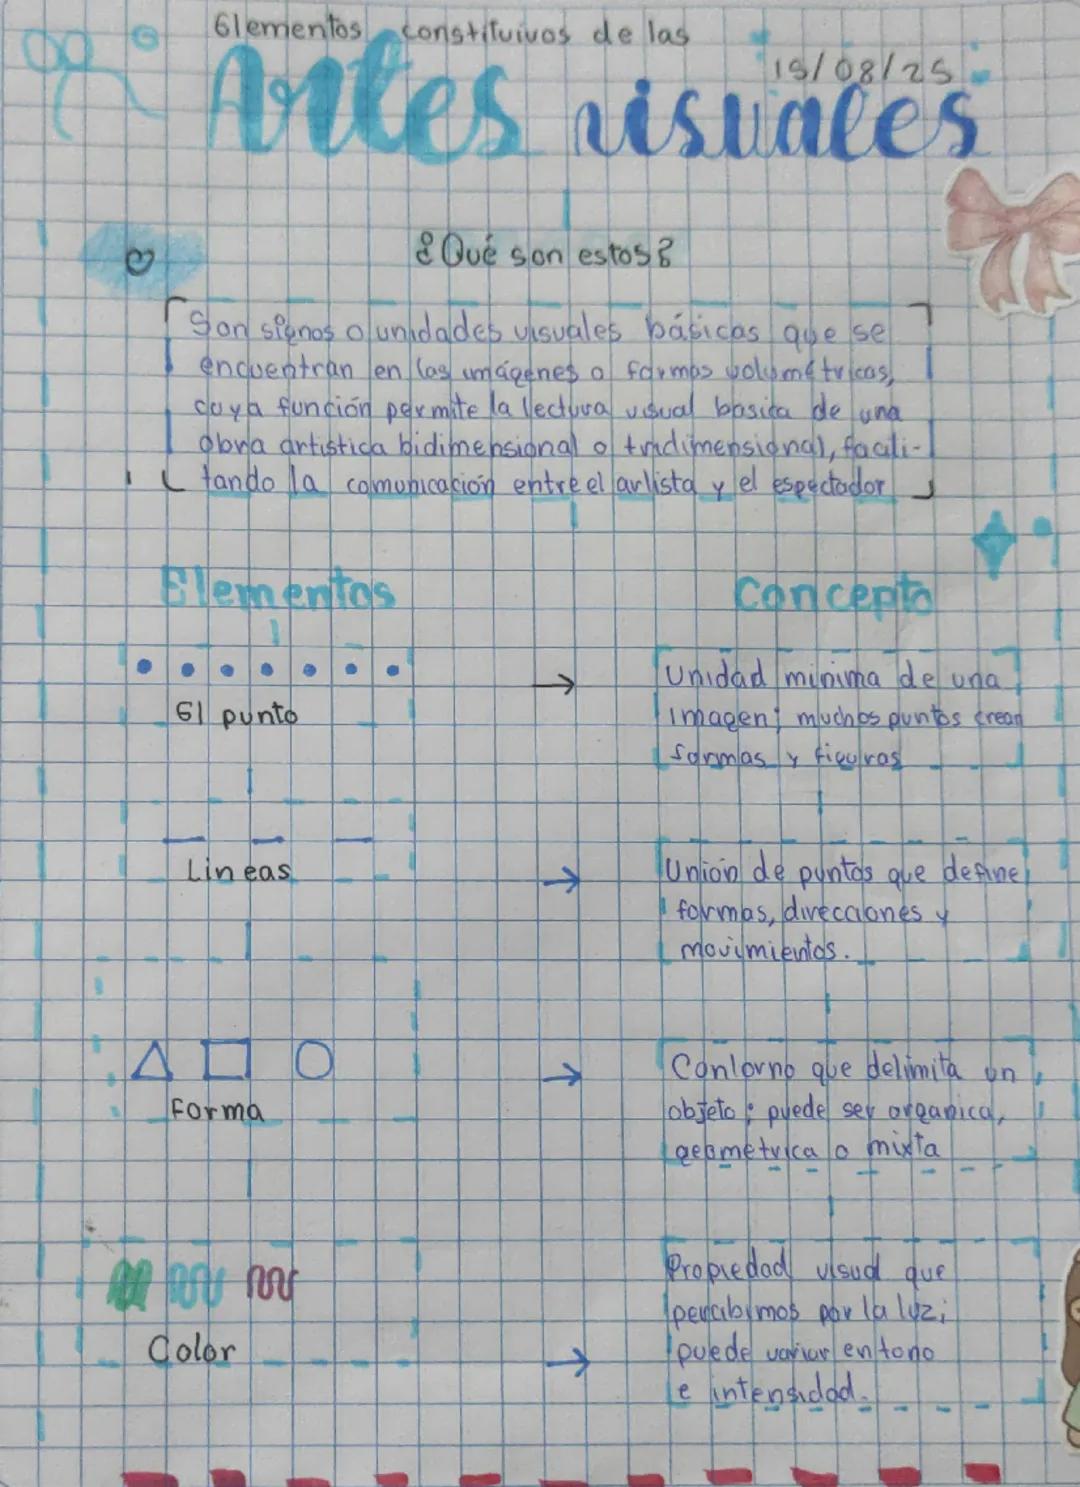 Elementos constituivos de las
19/08/25
Artes visuales
¿Qué son estos?
Son signos o unidades visuales básicas que se
encuentran en las imágenes o formas volumétricas,
cuya función permite la lectura visual basica de una
obra artistica bidimensional o tridimensional, facili-
tando la comunicación entre el artista y el espectador
Elementos
Concepto
El punto
→
Unidad minima de una
imagen; muchos puntos crean
formas y figuras
Lineas
→
Unión de puntos que define
formas, direcciones y
movimientos.
Forma
→
Contorno que delimita un
objeto; puede ser organica,
geometrica o mixta
Color
→
Propiedad visual que
percibimos por la luz;
puede variar en tono
e intensidad.